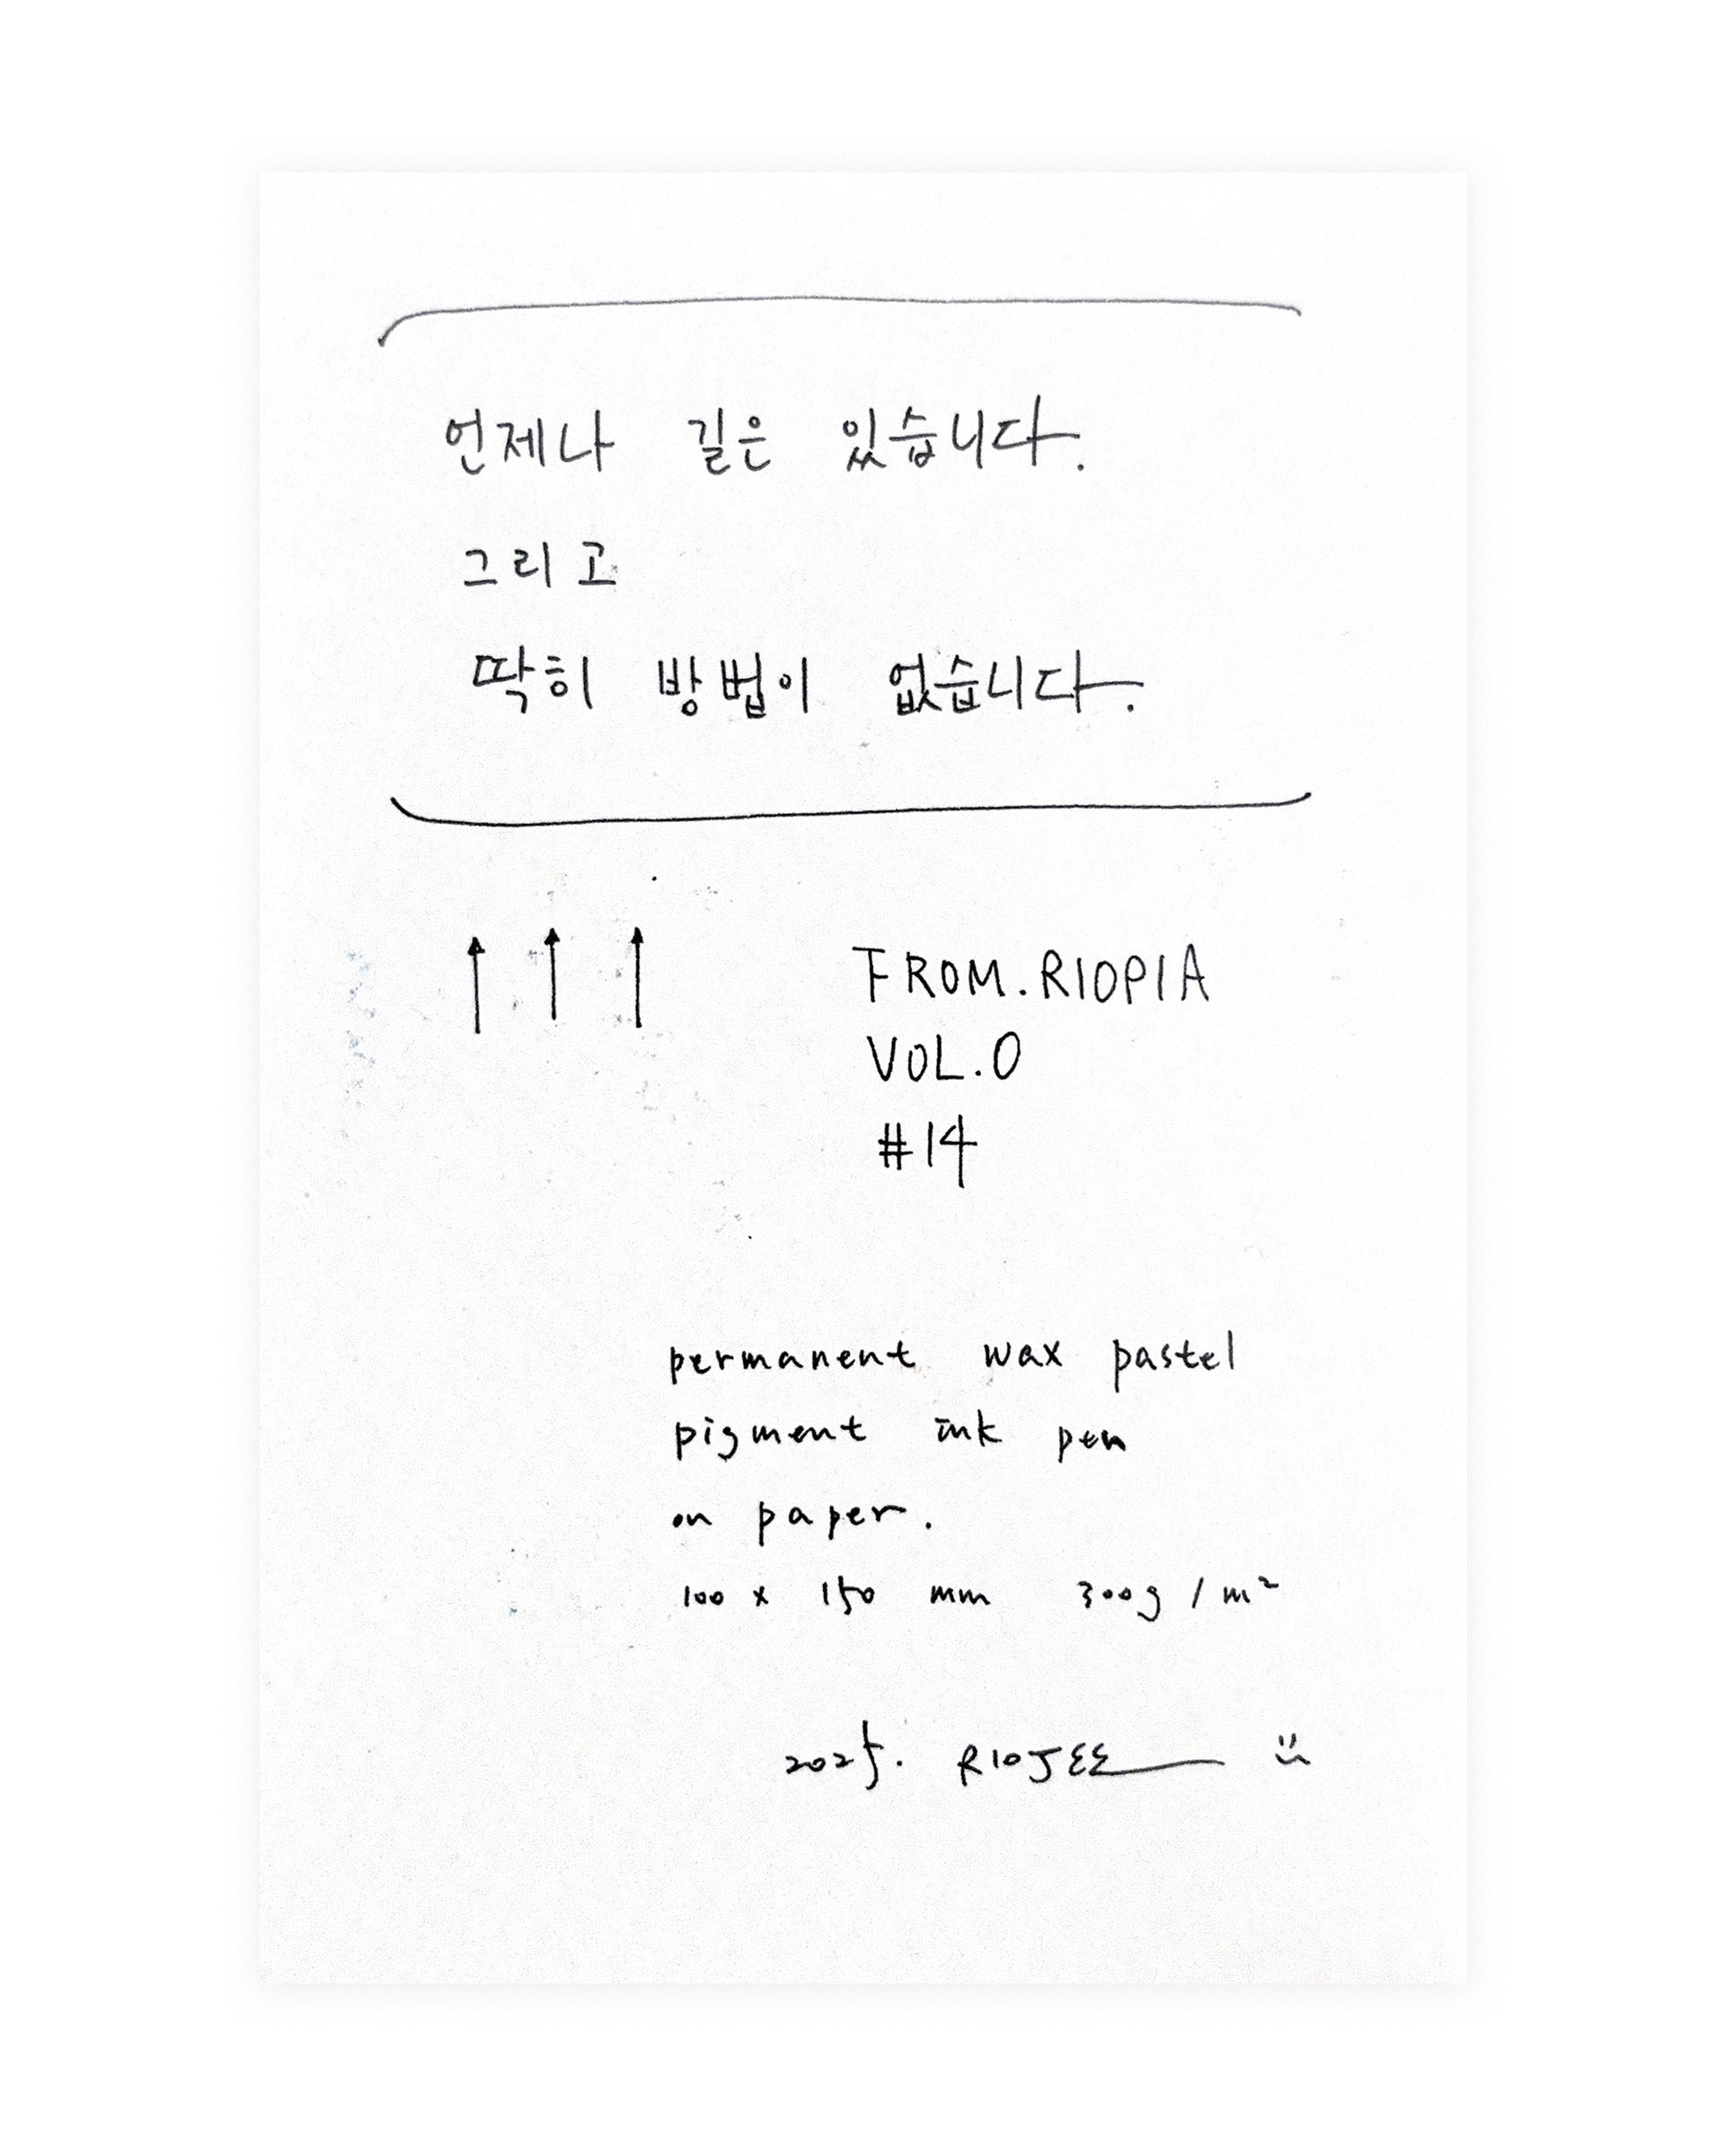 언제나 길은 있습니다.
그리고
딱히 방법이 없습니다.
FROM.RIOPIA
VOL.0
#14
permanent wax pastel
pigment ink pen
on paper.
100 x 150 mm 300g / m²
2025. RIOJEE